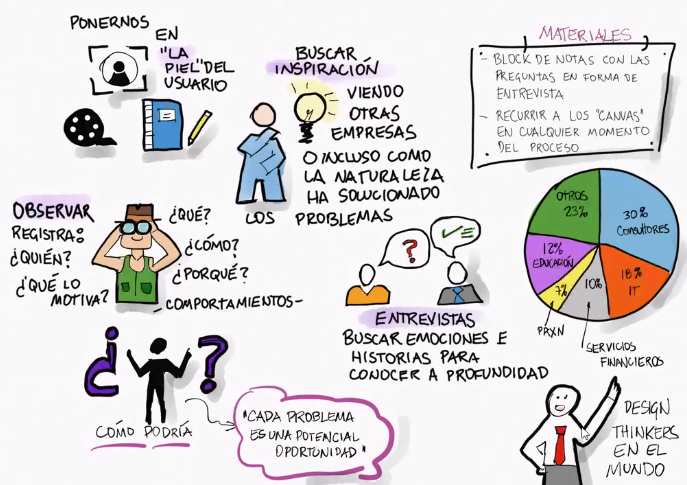 PONERNOS
EN
"LA
PIEL" DEL
USUARIO
BUSCAR
INSPIRACIÓN
VIENDO
OTRAS
EMPRESAS
O INCLUSO COMO
LA NATURALEZA
HA SOLUCIONADO
LOS PROBLEMAS
MATERIALES
- BLOCK DE NOTAS CON LAS
PREGUNTAS EN FORMA DE
ENTREVISTA
- RECURRIR A LOS "CANVAS"
EN CUALQUIER MOMENTO
DEL PROCESO
OBSERVAR
REGISTRA:
¿QUIÉN?
¿QUÉ LO
MOTIVA?
¿QUÉ?
¿CÓMO?
¿PORQUÉ?
- COMPORTAMIENTOS -
?
ENTREVISTAS
BUSCAR EMOCIONES E
HISTORIAS PARA
CONOCER A PROFUNDIDAD
OTROS
23%
30%
CONSULTORES
12%
EDUCACIÓN
18%
IT
7%
10%
PRXN
SERVICIOS
FINANCIEROS
¿ ?
CÓMO PODRÍA
"CADA PROBLEMA
ES UNA POTENCIAL
OPORTUNIDAD"
DESIGN
THINKERS
EN EL
MUNDO